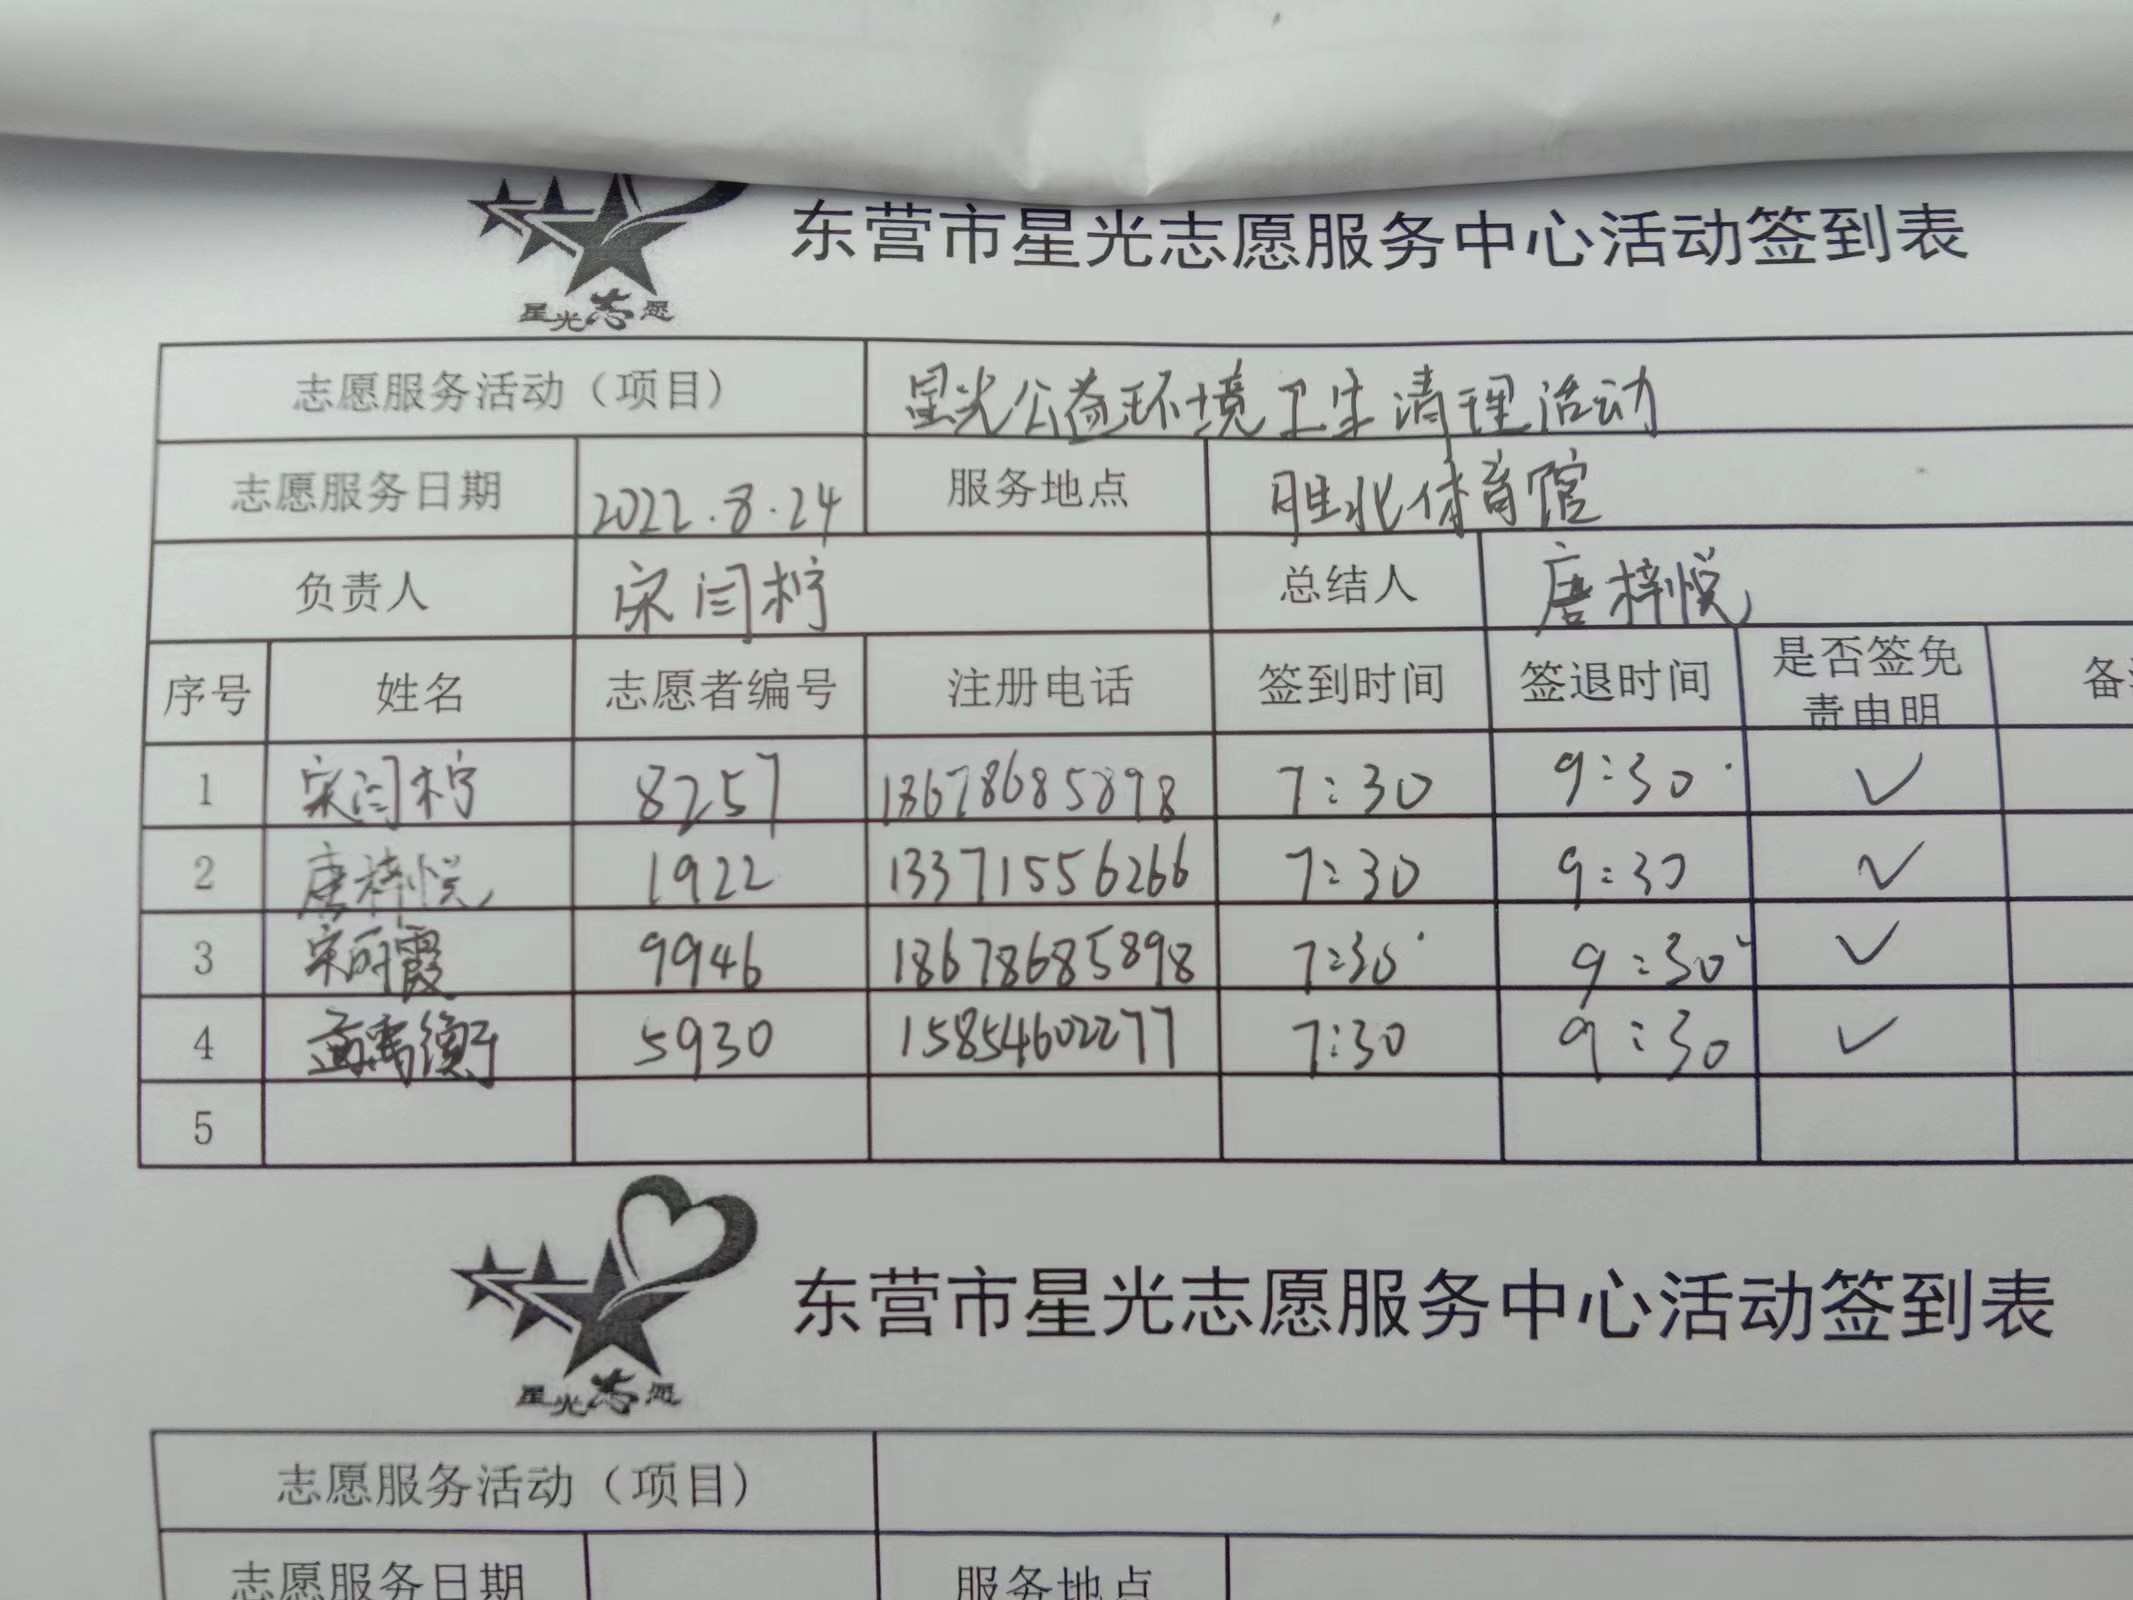 星光志愿
东营市星光志愿服务中心活动签到表
志愿服务活动（项目） 星光公益环境卫生清理活动
志愿服务日期 2022.8.24 服务地点 胜北体育馆
负责人 宋闫柠 总结人 唐梓悦
序号 姓名 志愿者编号 注册电话 签到时间 签退时间 是否签免责申明 备
1 宋闫柠 8257 18678685898 7:30 9:30 ✓
2 唐梓悦 1922 13371556266 7:30 9:30 ✓
3 宋丽霞 9946 18678685898 7:30 9:30 ✓
4 5930 15854602277 7:30 9:30 ✓
5
星光志愿
东营市星光志愿服务中心活动签到表
志愿服务活动（项目）
志愿服务日期 服务地点